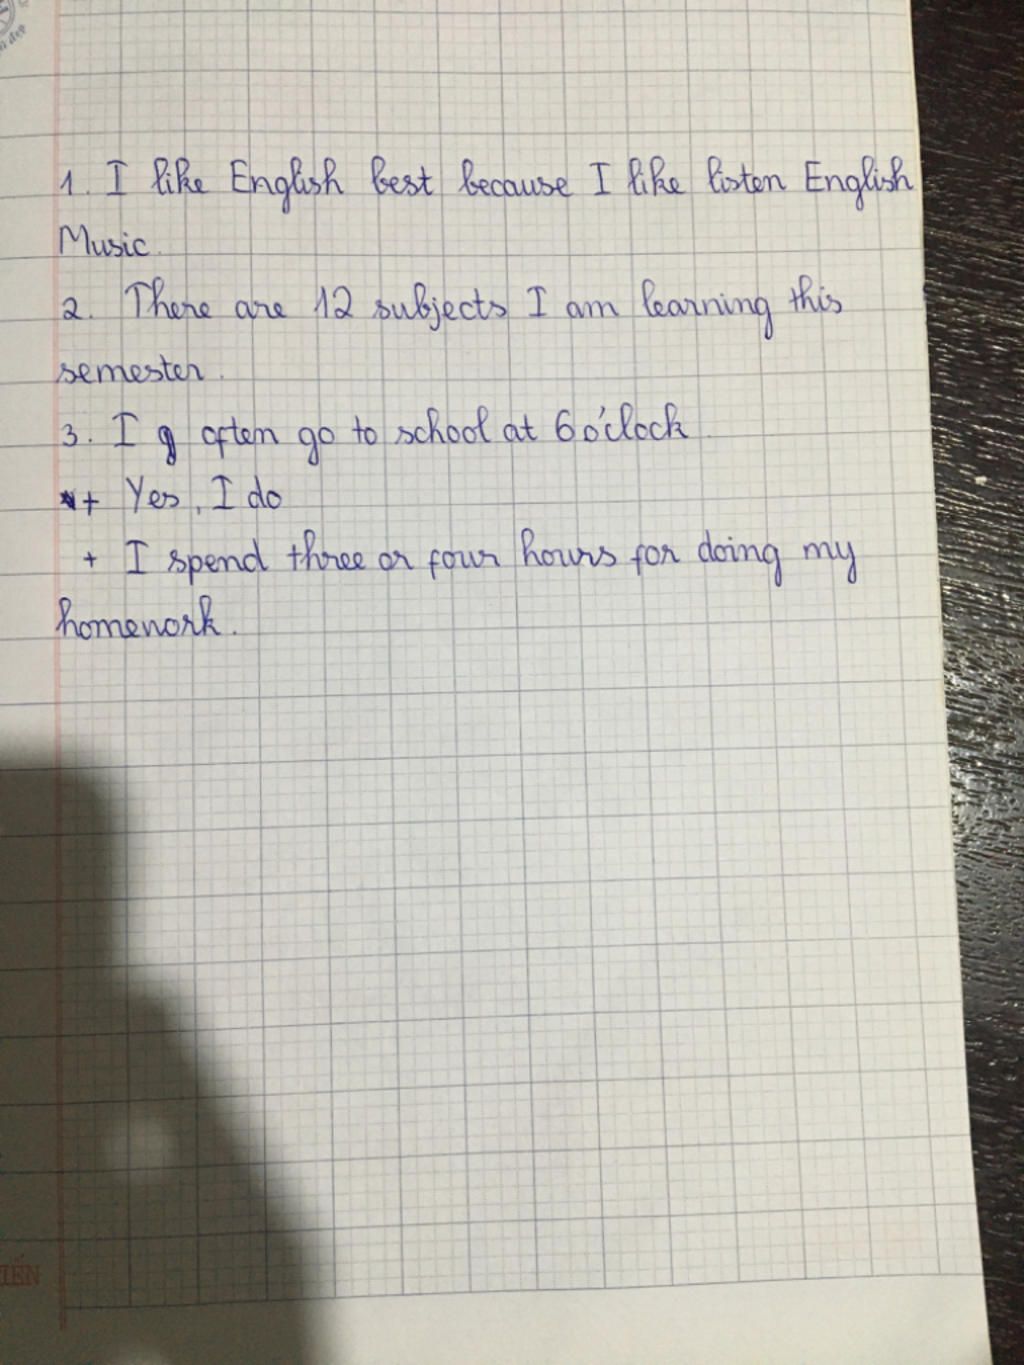 1. I like English best because I like listen English
Music.
2. There are 12 subjects I am learning this
semester.
3. I often go to school at 6 o'clock.
+ Yes, I do
+ I spend three or four hours for doing my
homework.
IẾN